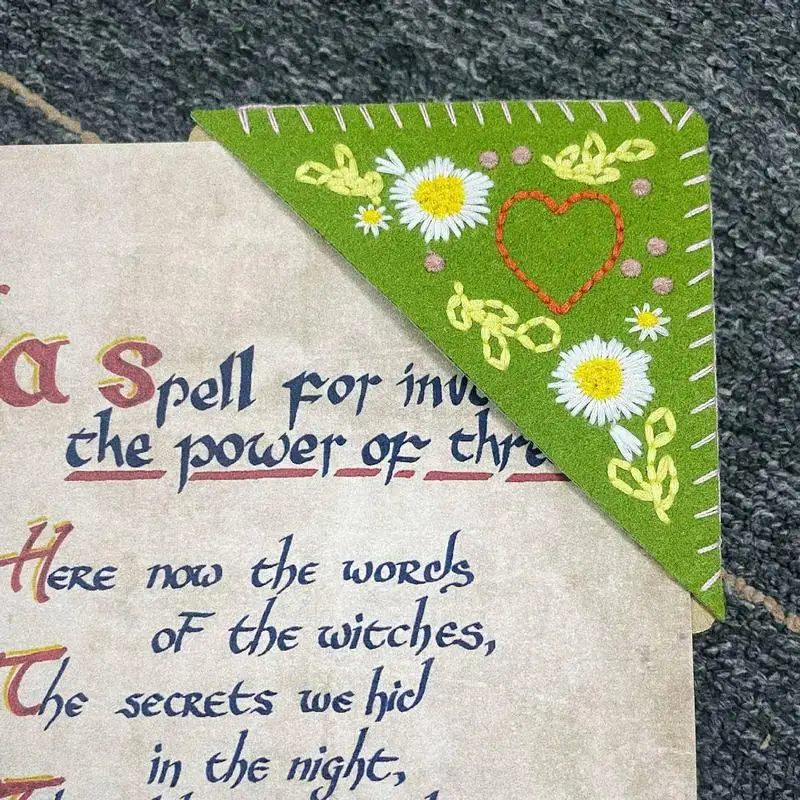 a Spell for
the power of
Here now the words
of the witches,
The secrets we hid
in the night,